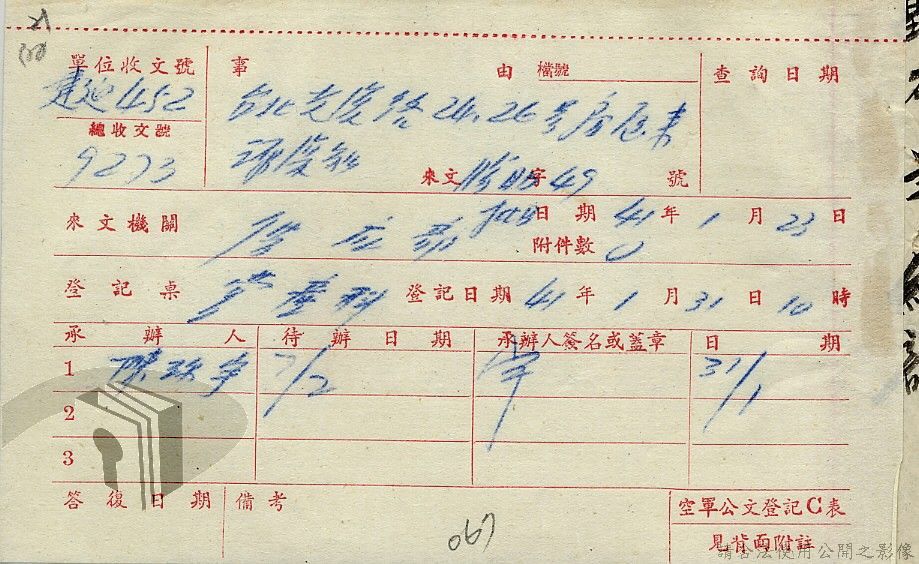 21
單位收文號 事 由 檔號 查詢日期
建延452 台北光復路24.26號房屋來
總收文號
9273 來文 字49 號
來文機關 日期 41年1月23日
附件數 0
登記桌 營產科 登記日期 41年1月31日10時
承辦人 待辦日期 承辦人簽名或蓋章 日期
1 陳 1/2 31/1
2
3
答復日期 備考 空軍公文登記C表
067 見背面附註
請合法使用公開之影像